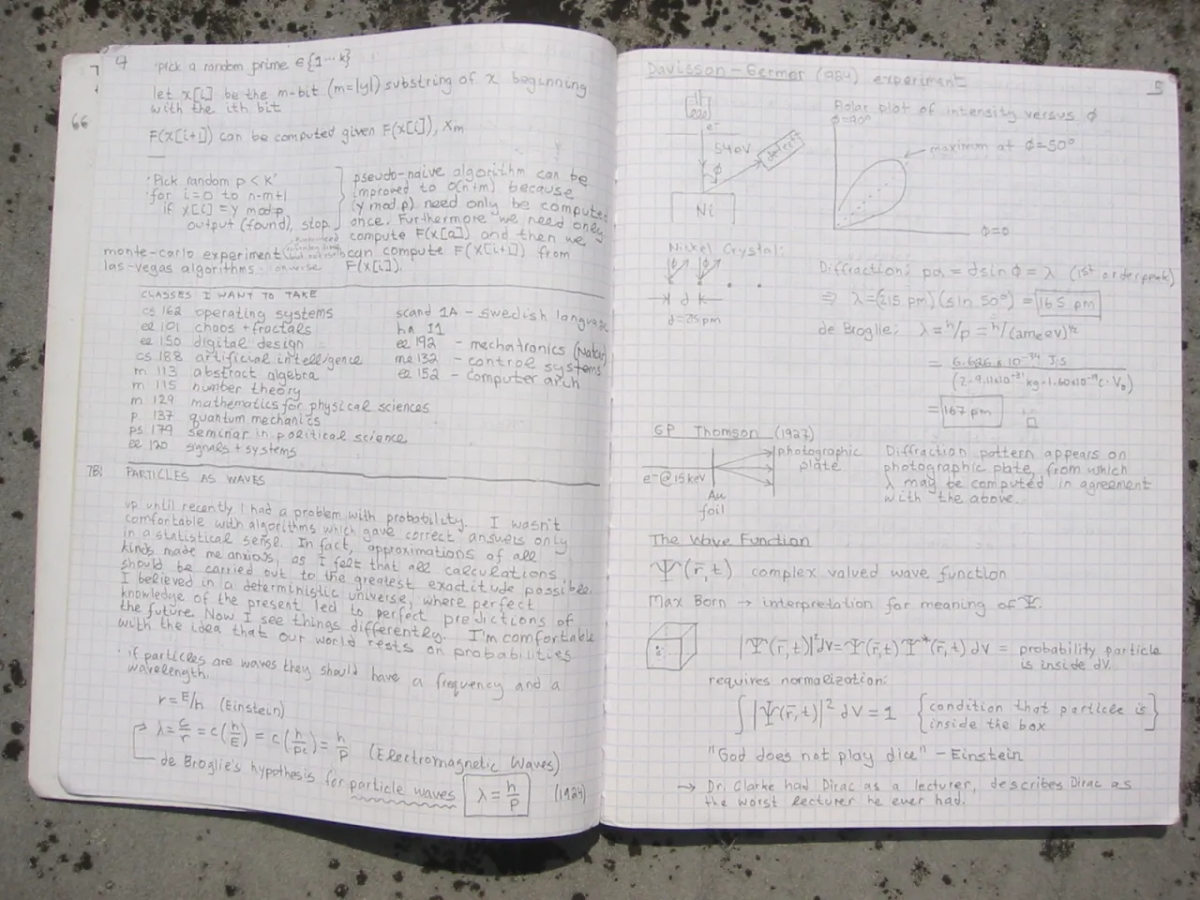 4
7
66
Pick a random prime ∈ {1...k}
let x[i] be the m-bit (m=|y|) substring of x beginning
with the ith bit
F(x[i+1]) can be computed given F(x[i]), xm
'Pick random p < k'
for i=0 to n-m+1
if x[i] = y mod p
output (found), stop
pseudo-naive algorithm can be
improved to O(n+m) because
(y mod p) need only be computed
once. Furthermore we need only
compute F(x[0]) and then we
can compute F(x[i+1]) from
F(x[i]).
monte-carlo experiment
las-vegas algorithms
CLASSES I WANT TO TAKE
cs 162 operating systems
ee 101 chaos + fractals
ee 150 digital design
cs 188 artificial intelligence
m 113 abstract algebra
m 115 number theory
m 129 mathematics for physical sciences
p 137 quantum mechanics
ps 179 seminar in political science
ee 120 signals + systems
scand 1A - swedish language
hn 11
ee 192 - mechatronics
me 132 - control systems
ee 152 - computer arch
7B: PARTICLES AS WAVES
up until recently I had a problem with probability. I wasn't
comfortable with algorithms which gave correct answers only
in a statistical sense. In fact, approximations of all
kinds made me anxious, as I felt that all calculations
should be carried out to the greatest exactitude possible.
I believed in a deterministic universe, where perfect
knowledge of the present led to perfect predictions of
the future. Now I see things differently. I'm comfortable
with the idea that our world rests on probabilities
· if particles are waves they should have a frequency and a
wavelength.
r = E/h (Einstein)
λ = c/r = c(h/E) = c(h/pc) = h/p (Electromagnetic Waves)
de Broglie's hypothesis for particle waves λ = h/p (1924)
5
Davisson-Germer (1984) experiment
e⁻
54eV
ϕ
detect
Ni
Polar plot of intensity versus ϕ
ϕ=90°
maximum at ϕ=50°
ϕ=0
Nickel Crystal:
ϕ ϕ
→ d ←
Diffraction: pd. = d sin ϕ = λ (1st order peak)
⇒ λ = (215 pm)(sin 50°) = 165 pm
de Broglie: λ = h/p = h/(2meeV)^½
= 6.626 x 10⁻³⁴ J·s / (2·9.11x10⁻³¹ kg·1.60x10⁻¹⁹ C·V₀)
= 167 pm
GP Thomson (1927)
e⁻@15keV
Au
foil
photographic
plate
Diffraction pattern appears on
photographic plate, from which
λ may be computed in agreement
with the above.
The Wave Function
Ψ(r̄,t) complex valued wave function
Max Born → interpretation for meaning of Ψ.
|Ψ(r̄,t)|²dV = Ψ(r̄,t)Ψ*(r̄,t)dV = probability particle
is inside dV.
requires normalization:
∫|Ψ(r̄,t)|² dV = 1 {condition that particle is
inside the box}
"God does not play dice" - Einstein
→ Dr. Clarke had Dirac as a lecturer, describes Dirac as
the worst lecturer he ever had.